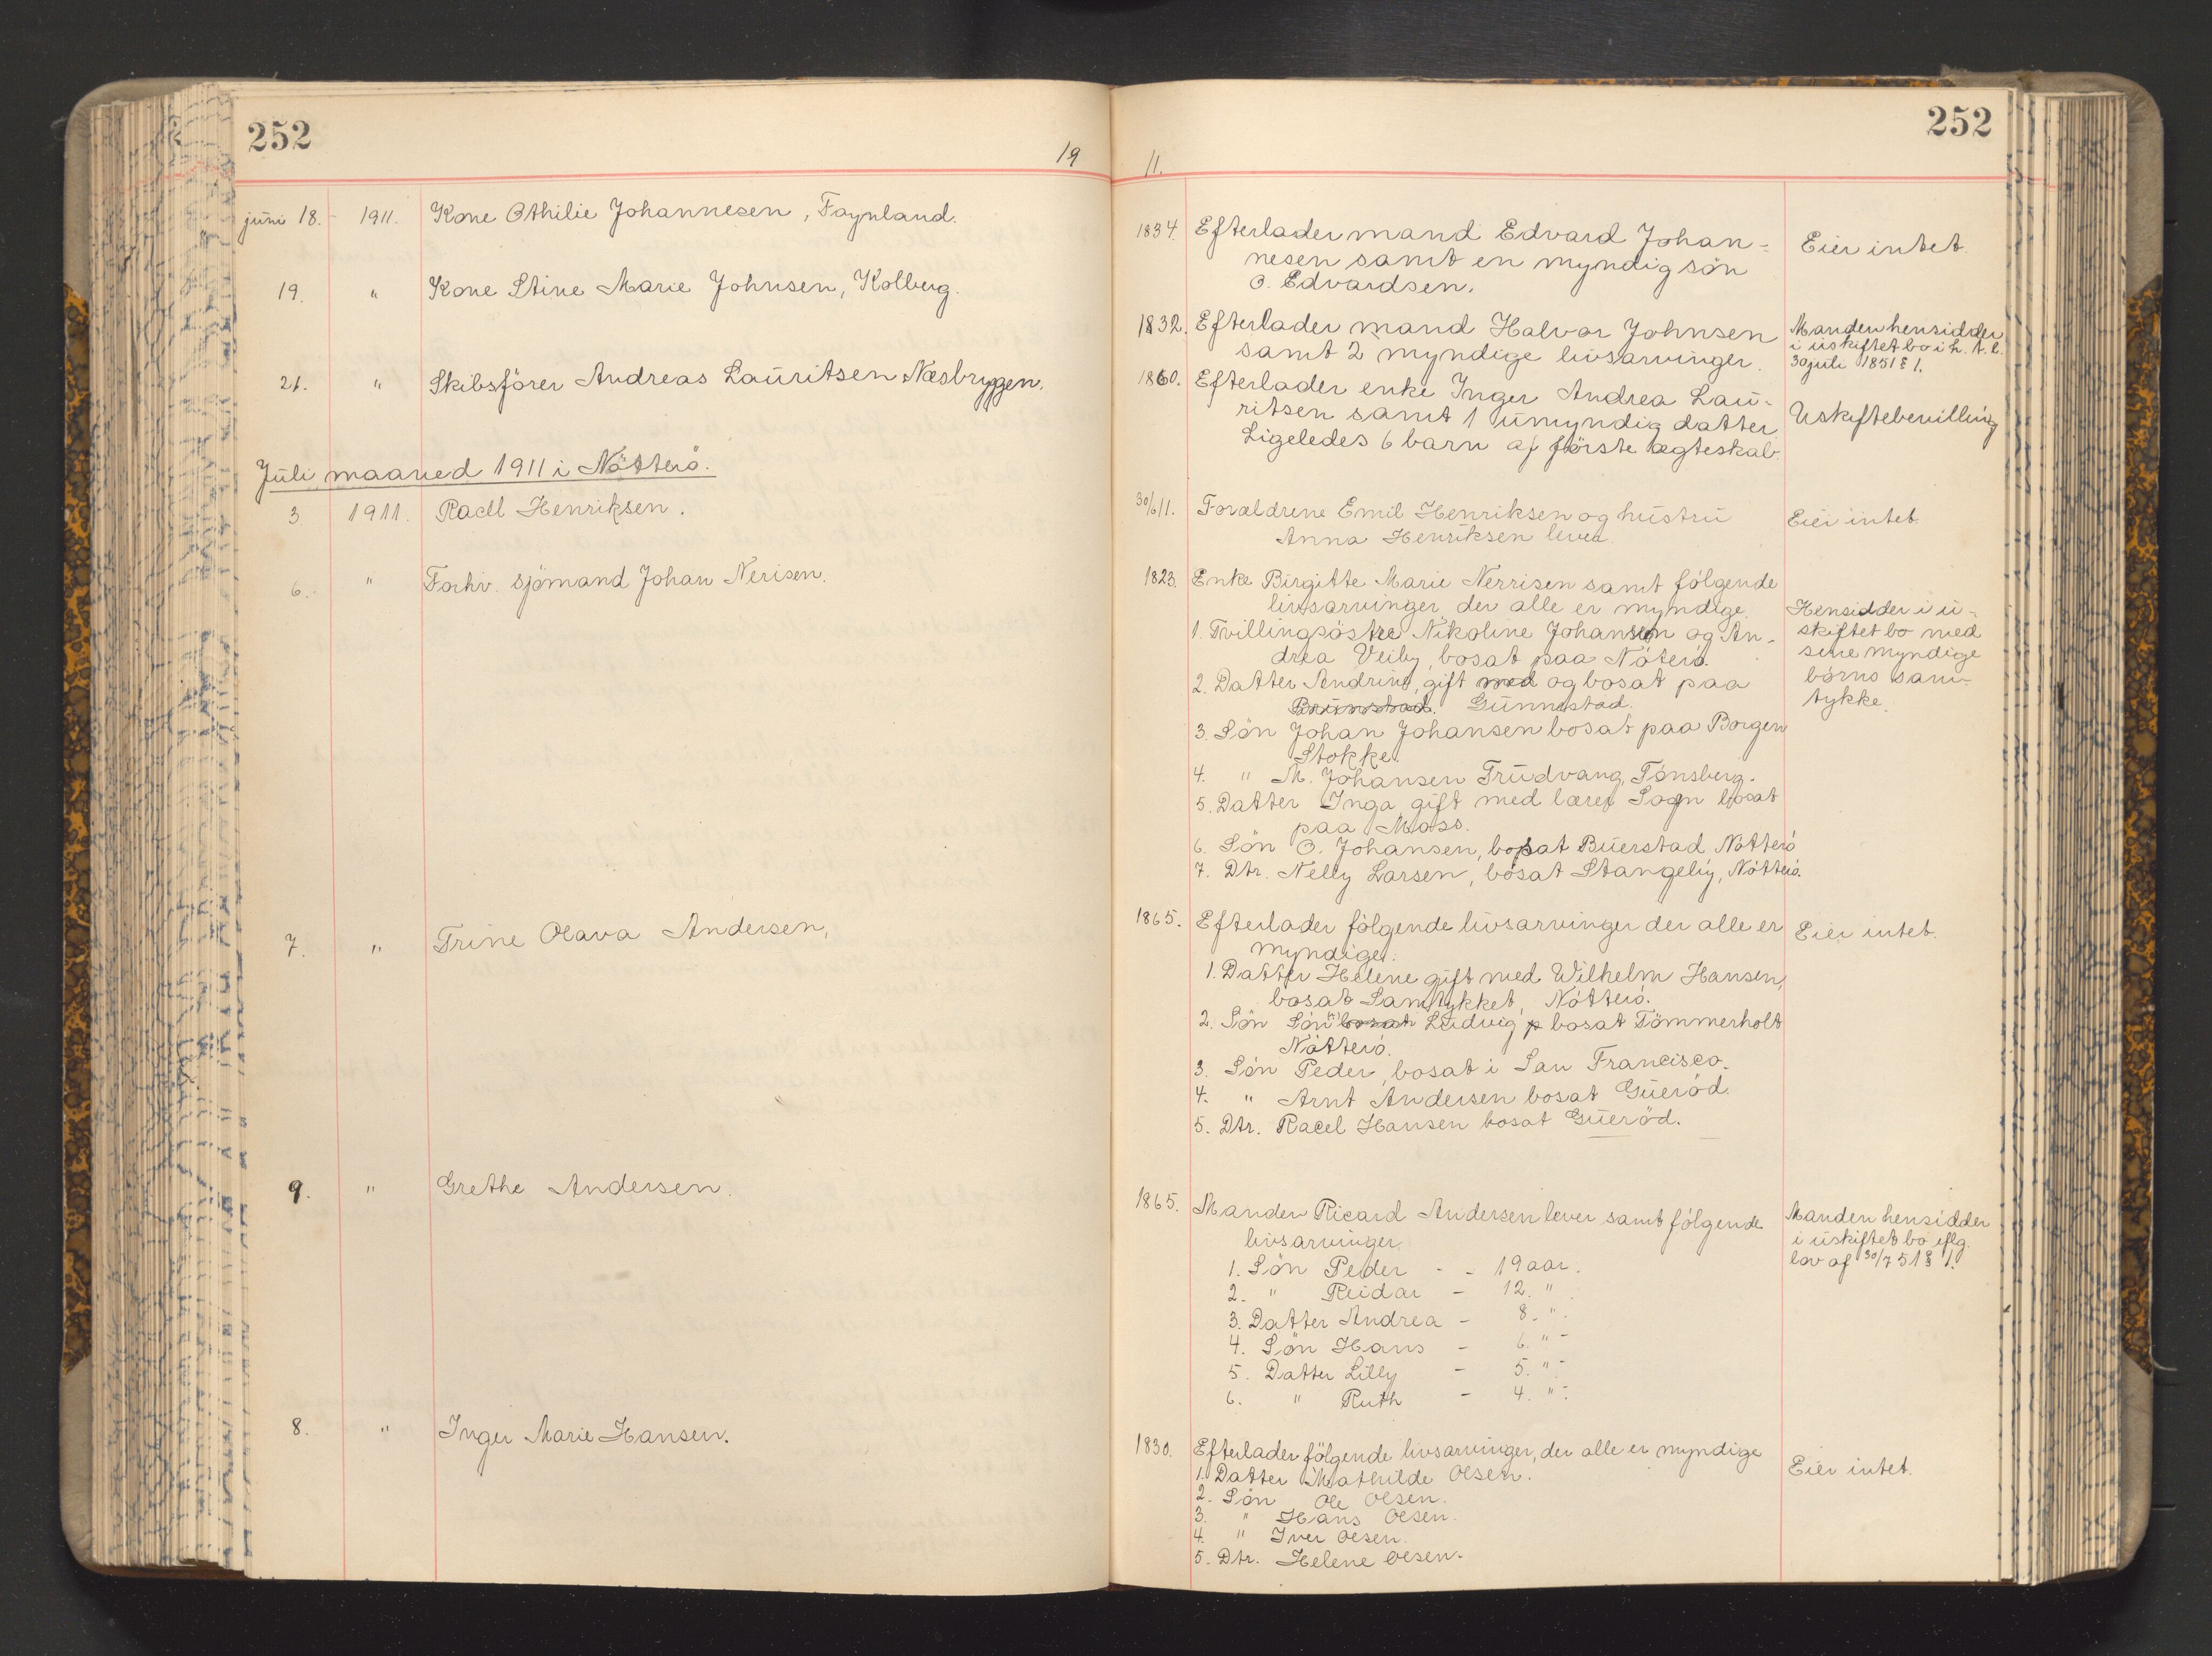 252
19
juni 18. 1911. Kone Othilie Johannesen, Føynland.
19. " Kone Stine Marie Johnsen, Kolberg.
21. " Skibsförer Andreas Lauritsen Næsbryggen.
Juli maaned 1911 i Nötterö.
3. 1911. Raell Henriksen.
6. " Forhv. sjömand Johan Nerisen.
7. " Trine Olava Andersen,
9. " Grethe Andersen.
8. " Inger Marie Hansen.
252
11.
1834. Efterlader mand Edvard Johan-
nesen samt en myndig sön
O. Edvardsen.
Eier intet.
1832. Efterlader mand Halvor Johnsen
samt 2 myndige livsarvinger.
Manden hensidder
i uskiftet bo i h. t. l.
30 juli 1851 § 1.
1860. Efterlader enke Inger Andrea Lau-
ritsen samt 1 umyndig datter
Ligeledes 6 barn af förste ægteskab.
Uskiftebevilling
30/6 11. Forældrene Emil Henriksen og hustru
Anna Henriksen lever.
Eier intet.
1823. Enke Birgitte Marie Nerrisen samt fölgende
livsarvinger der alle er myndige
1. Tvillingsöstre Nikoline Johansen og An-
drea Veiby, bosat paa Nöterö.
2. Datter Andrine, gift med og bosat paa
Brunstad. Gunnestad.
3. Sön Johan Johansen bosat paa Borgen
Stokke.
4. " M. Johansen Trudvang, Tönsberg.
5. Datter Inga gift med lærer Sogn bosat
paa Moss.
6. Sön O. Johansen, bosat Buerstad Nötterö
7. Dtr. Nelly Larsen, bosat Stangeby, Nötterö.
Hensidder i u-
skiftet bo med
sine myndige
börns sam-
tykke.
1865. Efterlader fölgende livsarvinger der alle er
myndige:
1. Datter Helene gift med Wilhelm Hansen,
bosat Samtykket, Nötterö.
2. Sön Sön bosat Ludvig, bosat Tömmerholt
Nötterö.
3. Sön Peder, bosat i San Francisco.
4. " Arnt Andersen bosat Gueröd.
5. Dtr. Racel Hansen bosat Gueröd.
Eier intet.
1865. Manden Ricard Andersen lever samt fölgende
livsarvinger
1. Sön Peder - - 19 aar.
2. " Reidar - 12. "
3. Datter Andrea - 8. "
4. Sön Hans - 6. " -
5. Datter Lilly - 5. " -
6. " Ruth - 4. " -
Manden hensidder
i uskiftet bo iflg.
lov af 30/7 51 § 1.
1830. Efterlader fölgende livsarvinger, der alle er myndige
1. Datter Mathilde Olsen.
2. Sön Ole Olsen.
3. " Hans Olsen.
4. " Iver Olsen.
5. Dtr. Helene Olsen.
Eier intet.